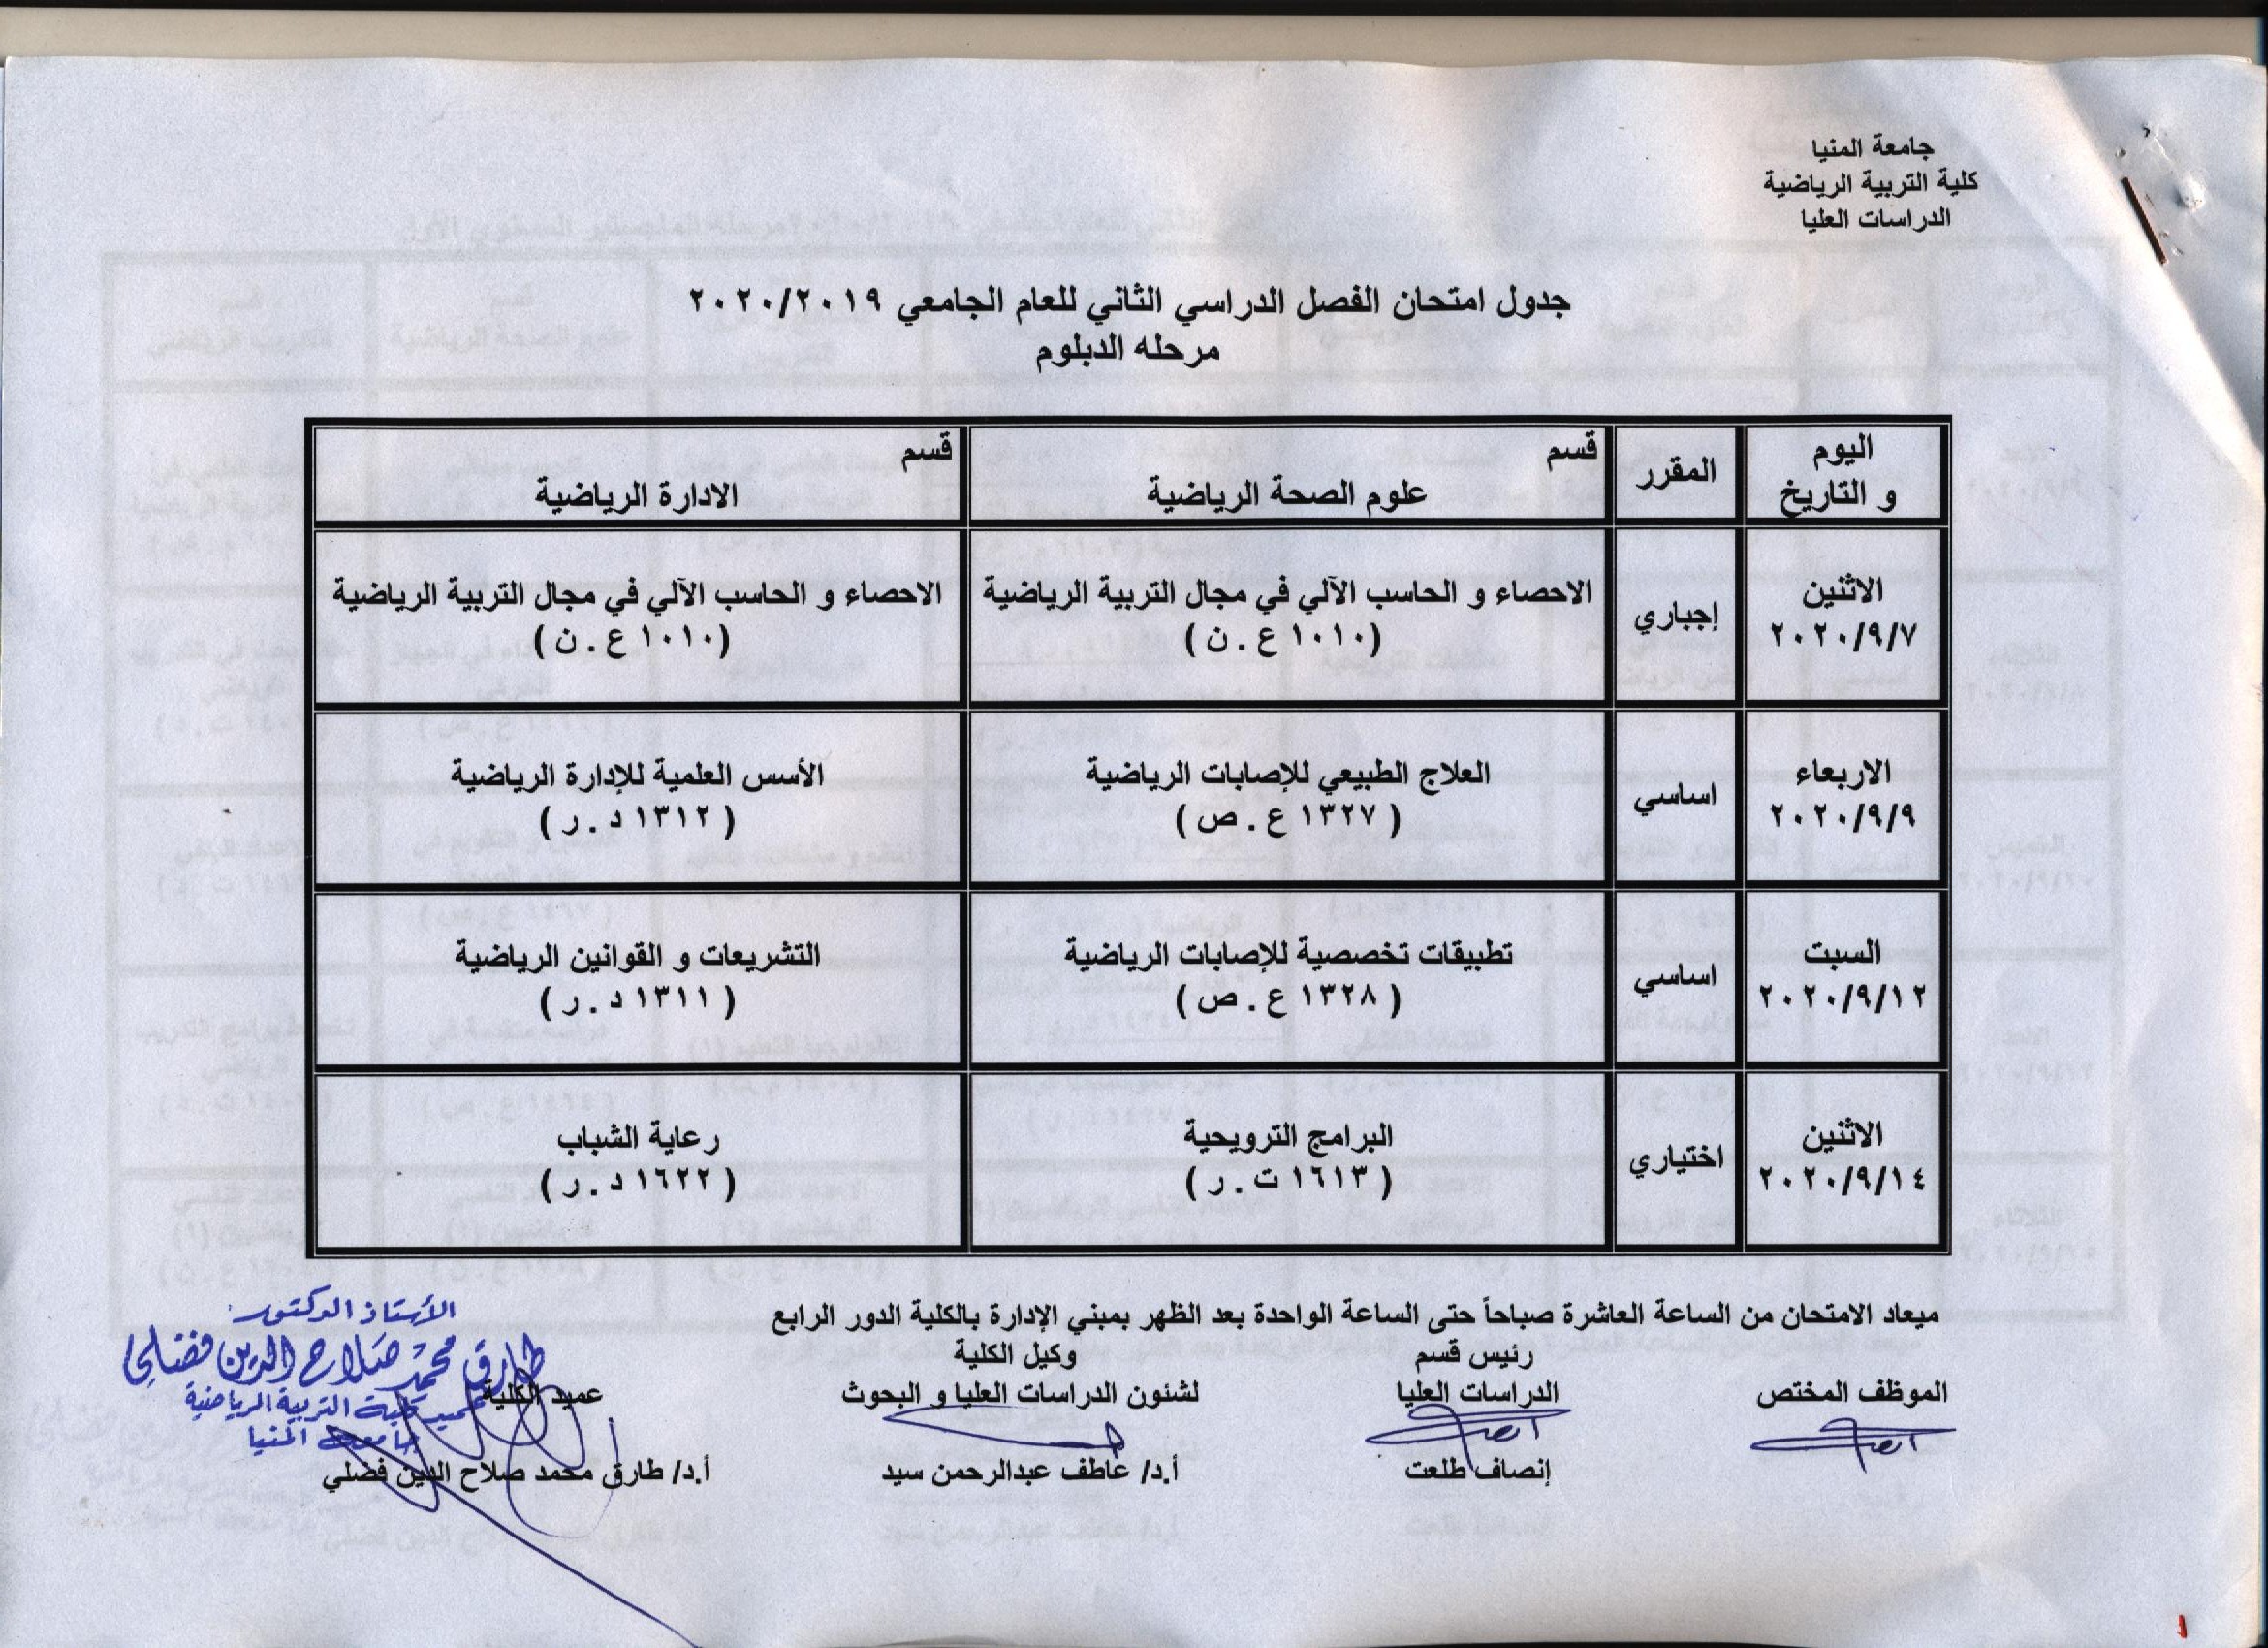 جامعة المنيا
كلية التربية الرياضية
الدراسات العليا
جدول امتحان الفصل الدراسي الثاني للعام الجامعي ٢٠٢٠/٢٠١٩
مرحله الدبلوم
اليوم
و التاريخ
المقرر
قسم
علوم الصحة الرياضية
قسم
الادارة الرياضية
الاثنين
٢٠٢٠/٩/٧
إجباري
الاحصاء و الحاسب الآلي في مجال التربية الرياضية
(١٠١٠ ع . ن )
الاحصاء و الحاسب الآلي في مجال التربية الرياضية
(١٠١٠ ع . ن )
الاربعاء
٢٠٢٠/٩/٩
اساسي
العلاج الطبيعي للإصابات الرياضية
( ١٣٢٧ ع . ص )
الأسس العلمية للإدارة الرياضية
( ١٣١٢ د . ر )
السبت
٢٠٢٠/٩/١٢
اساسي
تطبيقات تخصصية للإصابات الرياضية
( ١٣٢٨ ع . ص )
التشريعات و القوانين الرياضية
( ١٣١١ د . ر )
الاثنين
٢٠٢٠/٩/١٤
اختياري
البرامج الترويحية
( ١٦١٣ ت . ر )
رعاية الشباب
( ١٦٢٢ د . ر )
ميعاد الامتحان من الساعة العاشرة صباحاً حتى الساعة الواحدة بعد الظهر بمبني الإدارة بالكلية الدور الرابع
الموظف المختص
رئيس قسم
الدراسات العليا
إنصاف طلعت
وكيل الكلية
لشئون الدراسات العليا و البحوث
أ.د/ عاطف عبدالرحمن سيد
عميد الكلية
أ.د/ طارق محمد صلاح الدين فضلي
الأستاذ الدكتور
طارق محمد صلاح الدين فضلي
عميد كلية التربية الرياضية
جامعة المنيا
١